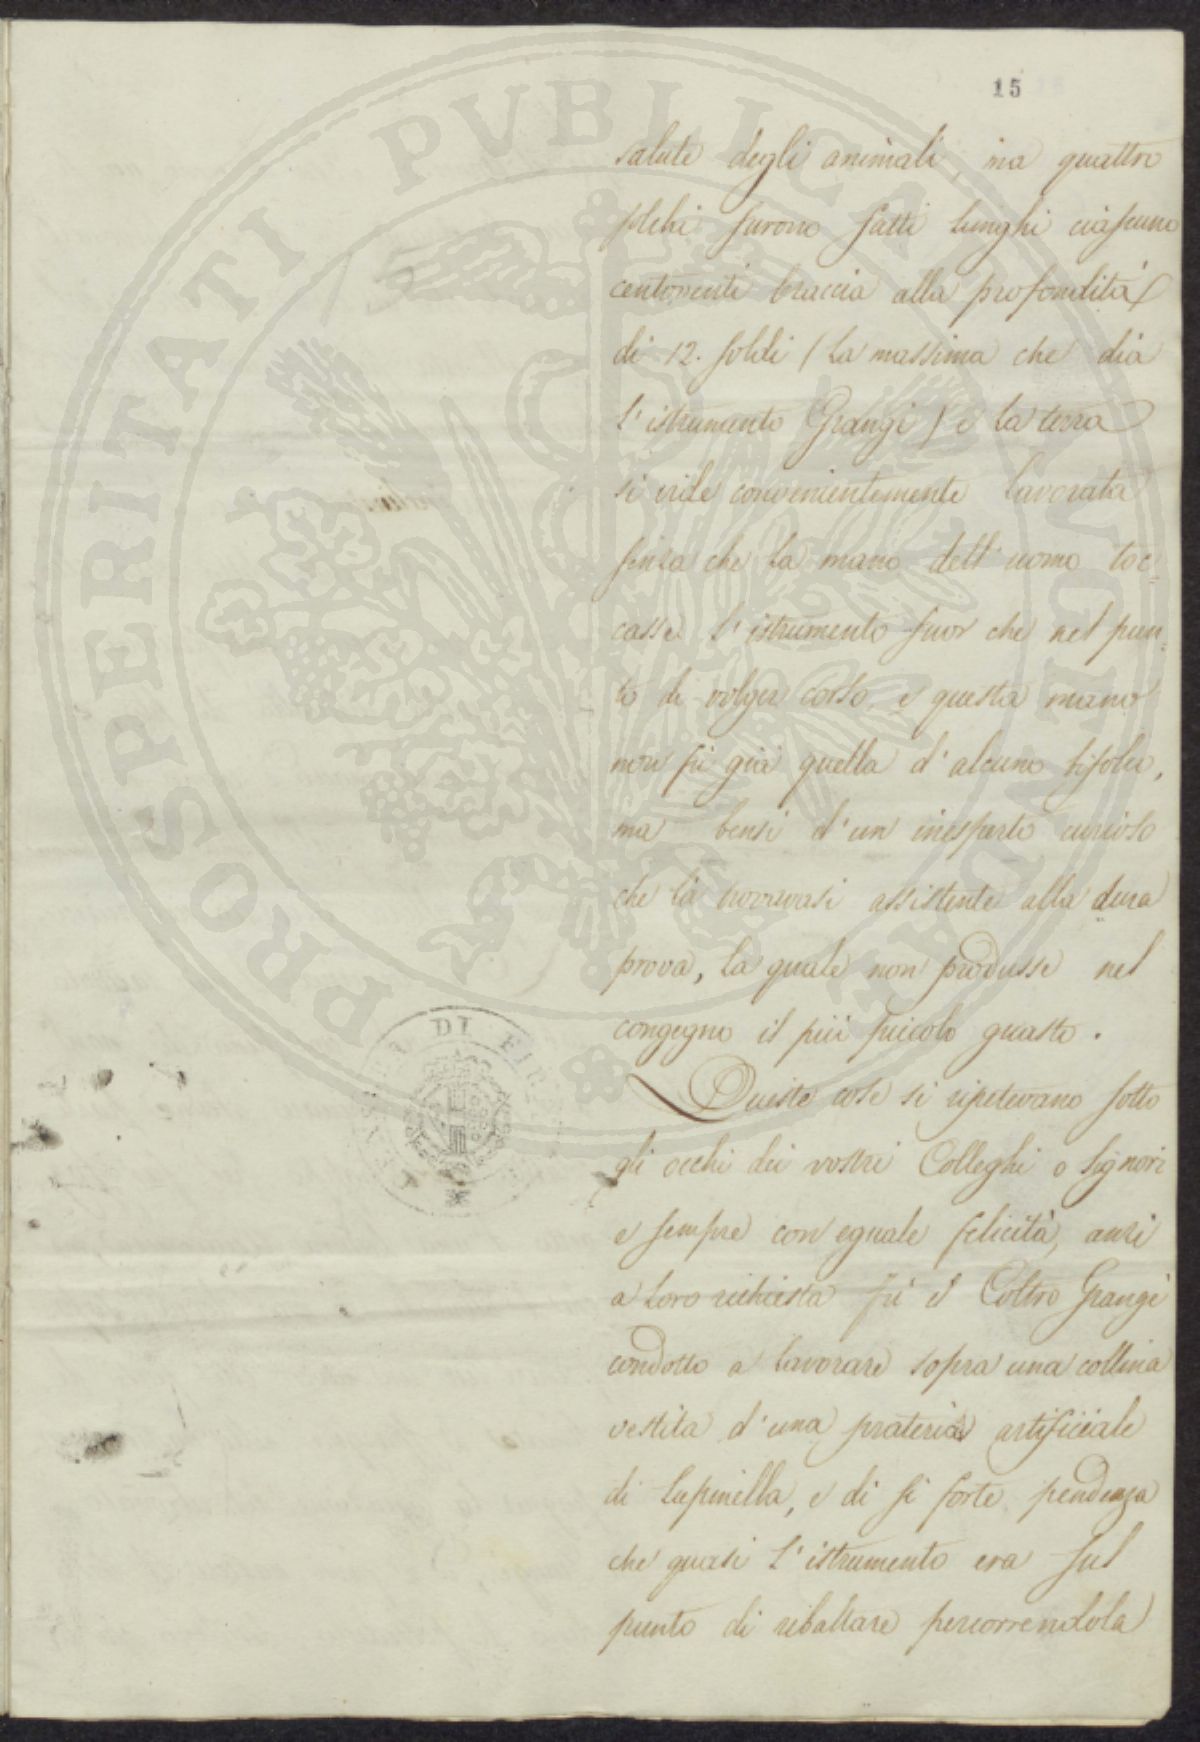 15
salute degli animali, ma quattro
solchi furono fatti lunghi ciascuno
centoventi braccia alla profondità
di 12. soldi (la massima che dia
l'istrumento Grangé) e la terra
si vide convenientemente lavorata
senza che la mano dell'uomo toc-
casse l'istrumento fuor che nel pun-
to di volger corso, e questa mano
non fù già quella d'alcuno bifolco,
ma bensi d'un inesperto curioso
che là trovavasi assistente alla dura
prova, la quale non produsse nel
congegno il più piccolo guasto.
Queste cose si ripetevano sotto
gli occhi dei vostri Colleghi o Signori
e sempre con eguale felicità, anzi
a loro richiesta fù il Coltro Grangé
condotto a lavorare sopra una collina
vestita d'una prateria artificiale
di Lupinella, e di sì forte pendenza
che quasi l'istrumento era sul
punto di ribaltare percorrendola
PROSPERITATI PVBLICAE AVGENDAE
DI FI